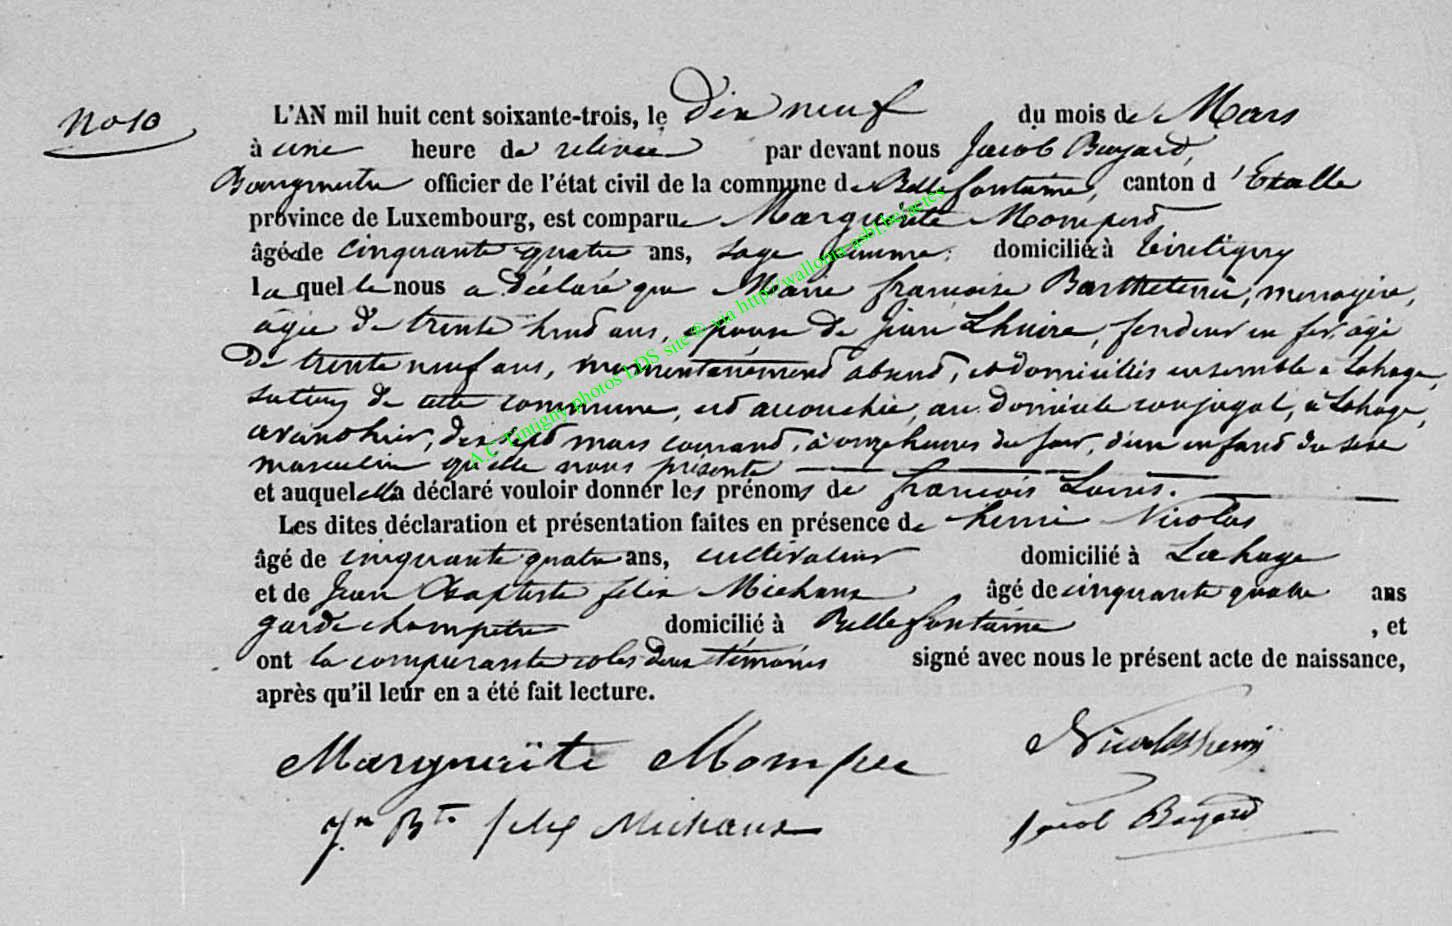 No 10
L'AN mil huit cent soixante-trois, le Dix neuf du mois de Mars
à une heure de relevée par devant nous Jacob Bayard,
Bourgmestre officier de l'état civil de la commune de Bellefontaine, canton d'Etalle
province de Luxembourg, est comparue Marguerite Momper
âgée de cinquante quatre ans, sage femme, domiciliée à Tintigny
laquelle nous a déclaré que Marie françoise Barthelemi, menagère,
agée de trente huit ans, épouse de Jean Lhuire, fendeur en fer, agé
De trente neuf ans, momentanément absent, et domiciliés ensemble a Lahage,
section de cette commune, est accouchée, au domicile conjugal, a Lahage,
avant hier, dix sept mars courant, à onze heures du soir, d'un enfant du sexe
masculin qu'elle nous présente
et auquel elle a déclaré vouloir donner les prénoms de françois Louis.
Les dites déclaration et présentation faites en présence de henri Nicolas
âgé de cinquante quatre ans, cultivateur domicilié à Lahage
et de Jean Baptiste felix Michaux âgé de cinquante quatre ans
garde champetre domicilié à Bellefontaine, et
ont la comparante et les deux témoins signé avec nous le présent acte de naissance,
après qu'il leur en a été fait lecture.
Marguerite Momper Nicolas henri
Jn Bte felix Michaux Jacob Bayard
A.C. Tintigny photos LDS site © via http://wallonia-asbl.be/actes